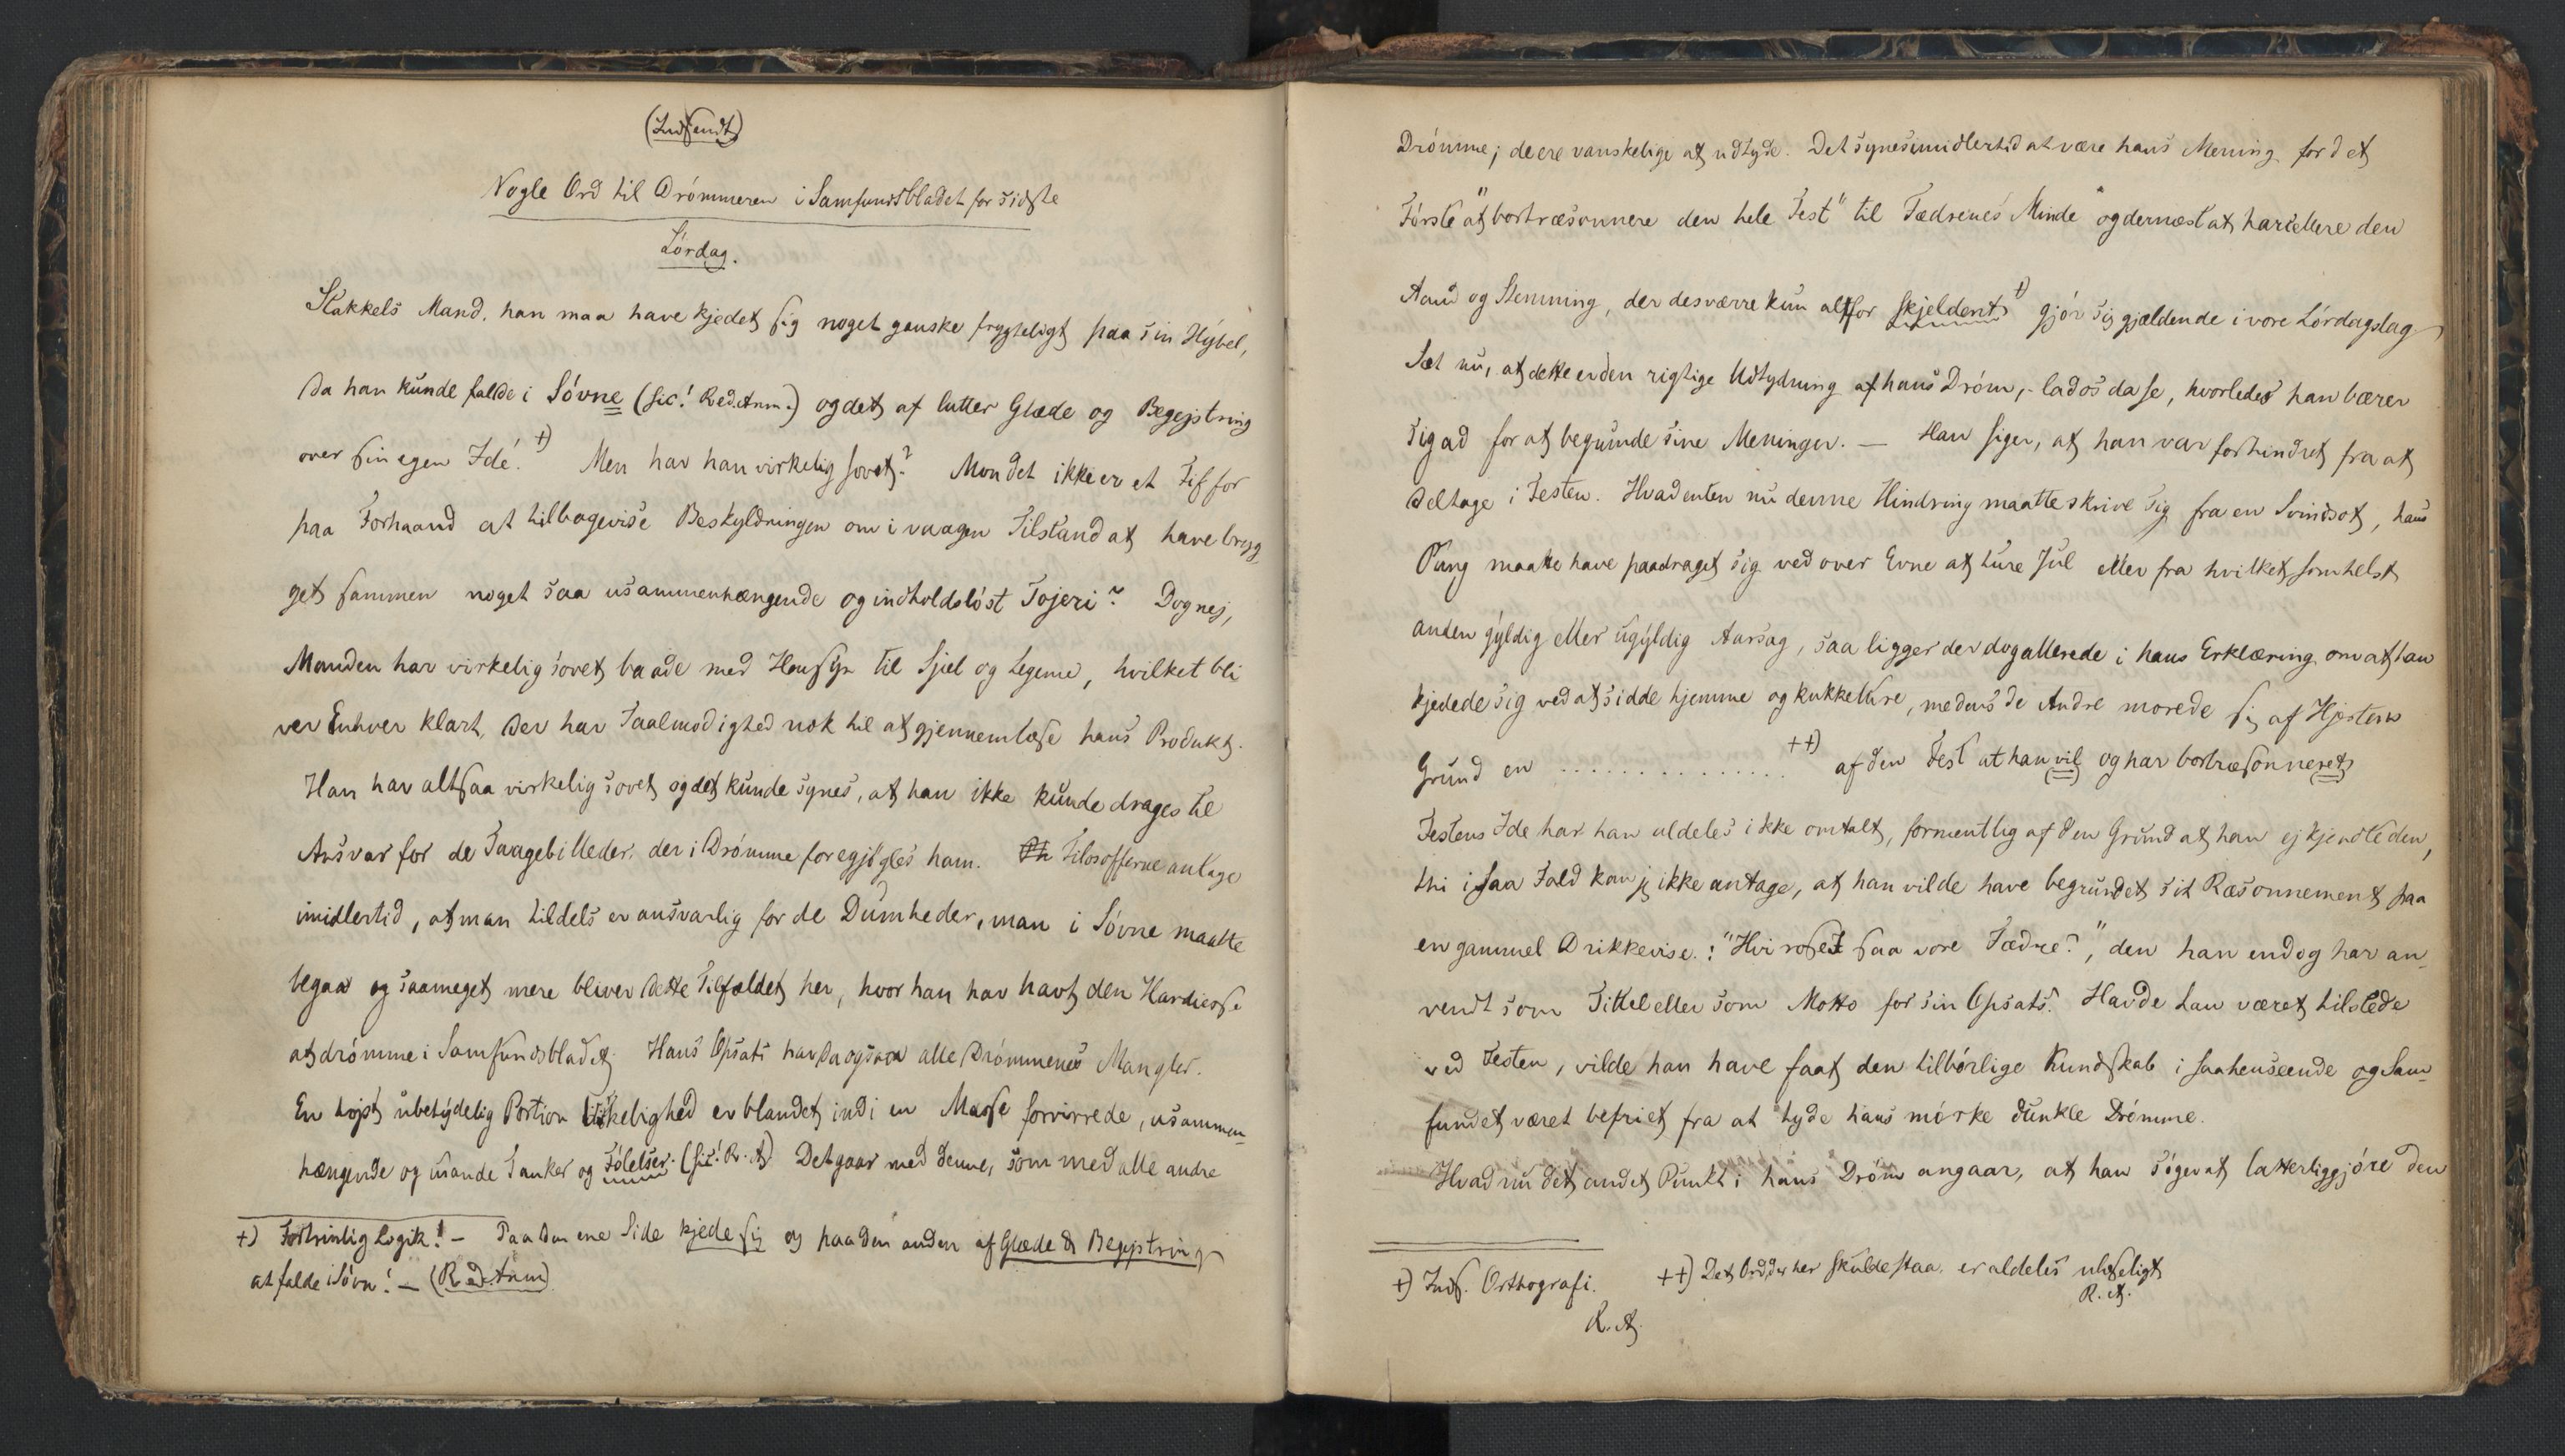 (Indsendt)
Nogle Ord til Drømmeren i Samfundsbladet for sidste
Lørdag.
Stakkels Mand, han maa have kjedet sig noget ganske frygteligt paa sin Hybel,
da han kunde falde i Søvne (sic! Red. Anm.) og det af lutter Glæde og Begejstring
over sin egen Idé. +) Men har han virkelig sovet? Mon det ikke er et Fif for
paa Forhaand at tilbagevise Beskyldningen om i vaagen Tilstand at have bryg-
get sammen noget saa usammenhængende og indholdsløst Tøjeri? Dog nej,
Manden har virkelig sovet baade med Hensyn til Sjæl og Legeme, hvilket bli
ver Enhver klart, der har Taalmodighed nok til at gjennemlæse hans Produkt.
Han har altsaa virkelig sovet og det kunde synes, at han ikke kunde drages til
Ansvar for de Taagebilleder, der i Drømme foregjøgles ham. Ph Filosofferne antage
imidlertid, at man tildels er ansvarlig for de Dumheder, man i Søvne maatte
begaa og saameget mere bliver dette Tilfældet her, hvor han har havt den Hardiesse
at drømme i Samfundsbladet. Hans Opsats har da ogsaa alle Drømmenes Mangler.
En højst ubetydelig Portion Virkelighed er blandet ind i en Masse forvirrede, usammen-
hængende og usande Tanker og Følelser. (sic! R. A.) Det gaar med denne, som med alle andre
+) Fortrinlig Logik! – Paa den ene Side kjede sig og paa den anden af Glæde & Begejstring
at falde i Søvn! – (Red. Anm)
Drømme; de ere vanskelige at udtyde. Det synes imidlertid at være hans Mening for det
Første "at bortræsonnere den hele Fest" til Fædrenes Minde" og dernæst at harcellere den
Aand og Stemning, der desværre kun altfor skjeldent +) gjør sig gjældende i vore Lørdagslag
Sæt nu, at dette er den rigtige Udtydning af hans Drøm, – lad os da se, hvorledes han bærer
sig ad for at begrunde sine Meninger. – Han siger, at han var forhindret fra at
deltage i Festen. Hvadenten nu denne Hindring maatte skrive sig fra en Svindsot, hans
Pung maatte have paadraget sig ved over Evne at ture Jul eller fra hvilketsomhelst
anden gyldig eller ugyldig Aarsag, saa ligger der dog allerede i hans Erklæring om at han
kjedede sig ved at sidde hjemme og kukkelure, medens de Andre morede sig af Hjertens
Grund en . . . . . . . . . . . . . . . ++) af den Fest at han vil og har bortræsonneret
Festens Ide har han aldeles ikke omtalt, formentlig af den Grund at han ej kjendte den,
thi i saa Fald kan jeg ikke antage, at han vilde have begrundet sit Ræsonnement paa
en gammel Drikkevise: "Hvi roses saa vore Fædre?", den han endog har an-
vendt som Tittel eller som Motto for sin Opsats. Havde han været tilstede
ved Festen, vilde han have faat den tilbørlige Kundskab i saahenseende og Sam-
fundet været befriet fra at tyde hans mørke dunkle Drømme.
Hvad nu det andet Punkt i hans Drøm angaar, at han søger at latterliggjøre den
+) Inds. Orthografi.
R. A.
++) Det Ord, der her skulde staa, er aldeles ulæseligt
R. A.